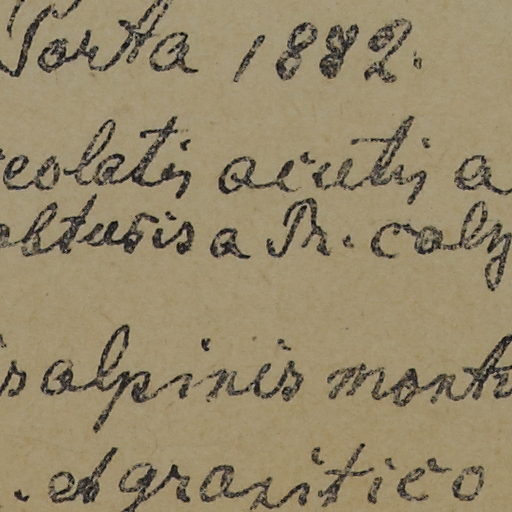 Porta 1882.
ceolatis acutis a
obtusis a Pr. caly
is alpinis mont
. et granitico